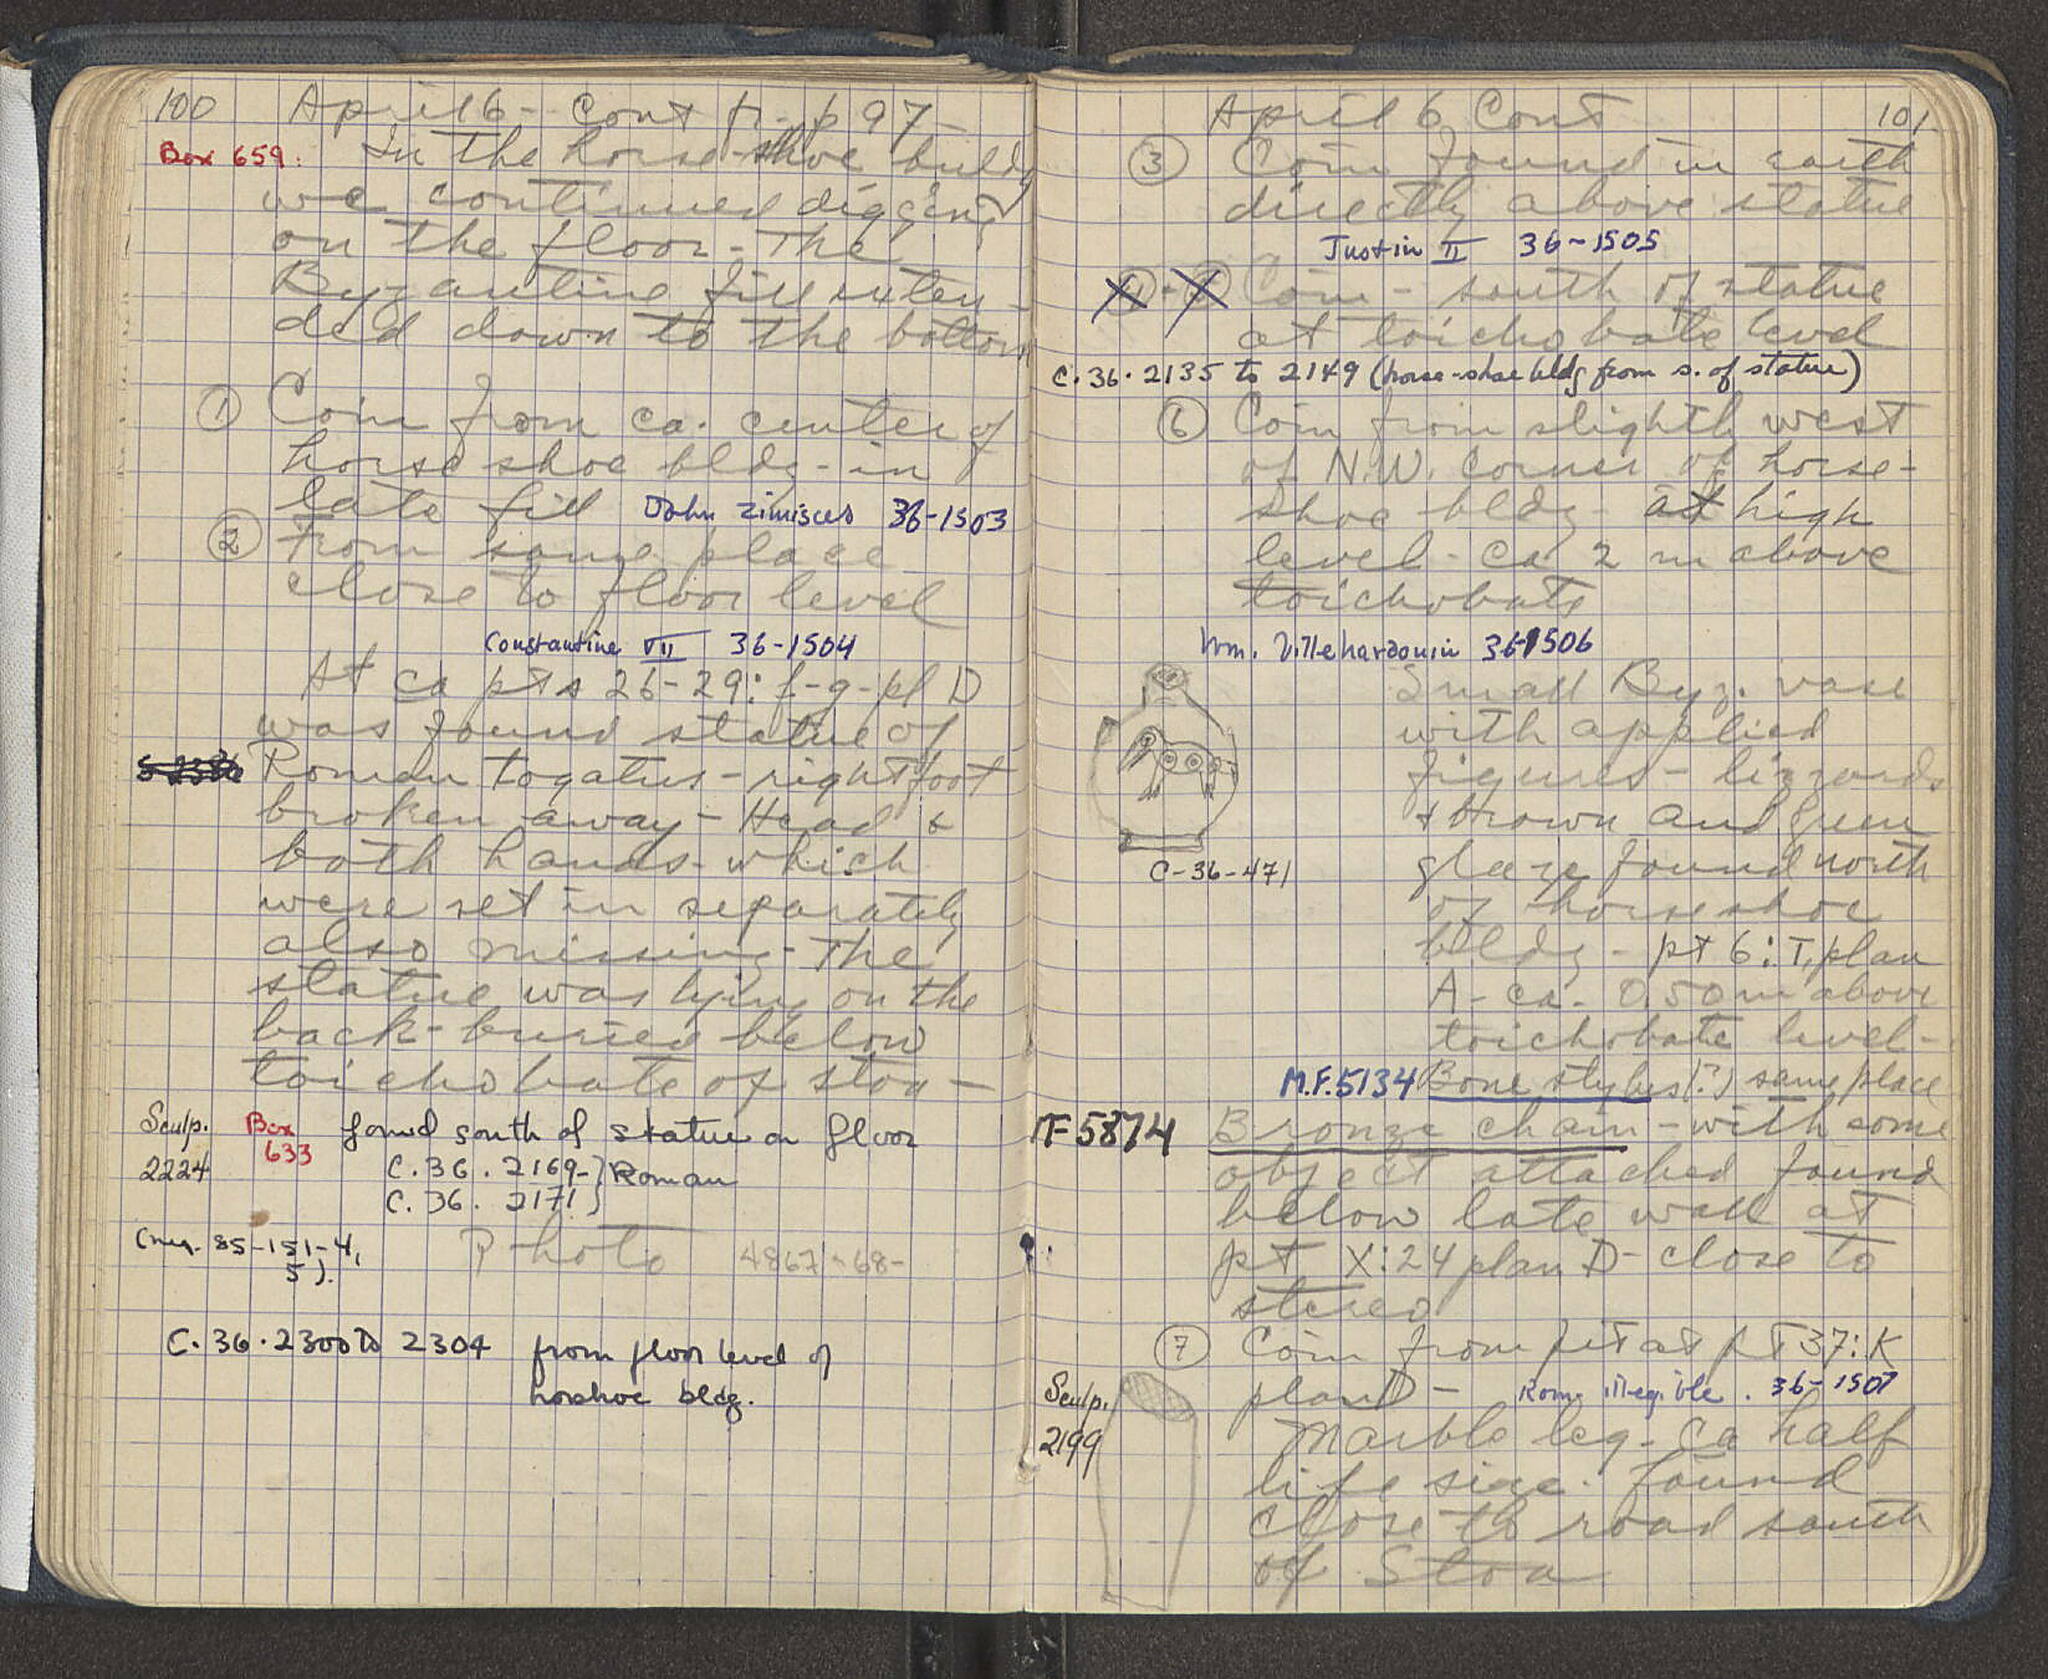 100 April 6 - Cont fr. p 97 -
Box 659: In the horse-shoe buldg
we continued digging
on the floor - The
Byzantine fill exten-
ded down to the bottom
① Coin from ca. center of
horse shoe bldg - in
late fill John Zimisces 36-1503
② From same place
close to floor level
Constantine VII 36-1504
At ca pts 26-29: f-g-pl D
was found statue of
Roman togatus - right foot
broken away - Head &
both hands - which
were set in separately
also missing - The
statue was lying on the
back - buried below
toichobate of stoa -
Sculp. 2224
Box 633
found south of statue on floor
C. 36. 2169-} Roman
C. 36. 2171}
(neg. 85-151-4,
5).
Photo 4867-68-
C. 36. 2300 to 2304 from floor level of
horshoe bldg.
April 6 Cont 101
③ Coin found in earth
directly above statue
Justin II 36-1505
Coin - south of statue
at toichobate level
C. 36. 2135 to 2149 (horse-shoe bldg from s. of statue)
⑥ Coin from slightly west
of N.W. Corner of horse-
shoe bldg - at high
level - ca 2 m above
toichobate
Wm. Villehardouin 36-1506
Small Byz. vase
with applied
figures - lizzards
+ brown and green
glaze found north
of horse shoe
bldg - pt 6: T, plan
A - ca. 0.50 m above
toichobate level -
C-36-471
M.F. 5134 Bone stylus (?) same place
MF 5874 Bronze chain - with some
object attached found
below late wall at
pt X:24 plan D - close to
stereo
⑦ Coin from pit at pt 37: K
plan D - Rom. illegible. 36-1507
Sculp. 2199
Marble leg - ca half
life size. found
close to road south
of Stoa